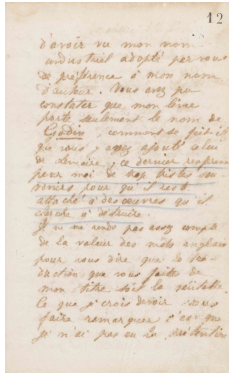 12
d'avoir vu mon nom
industriel adopté par vous
de préférence à mon nom
d'auteur. Vous avez pu
constater que mon livre
porte seulement le nom de
Godin, comment se fait-il
que vous y ayez ajouté celui
de Lemaire, ce dernier
pour moi de trop tristes sou-
venirs pour qu'il reste
attaché à des œuvres qu'il
cherche à détruire.
Je ne me rends pas assez compte
de la valeur des mots anglais
pour vous dire que la tra-
duction que vous faites de
mon titre soit la véritable.
Ce que je crois devoir vous
faire remarquer c'est que
je n'ai pas eu la